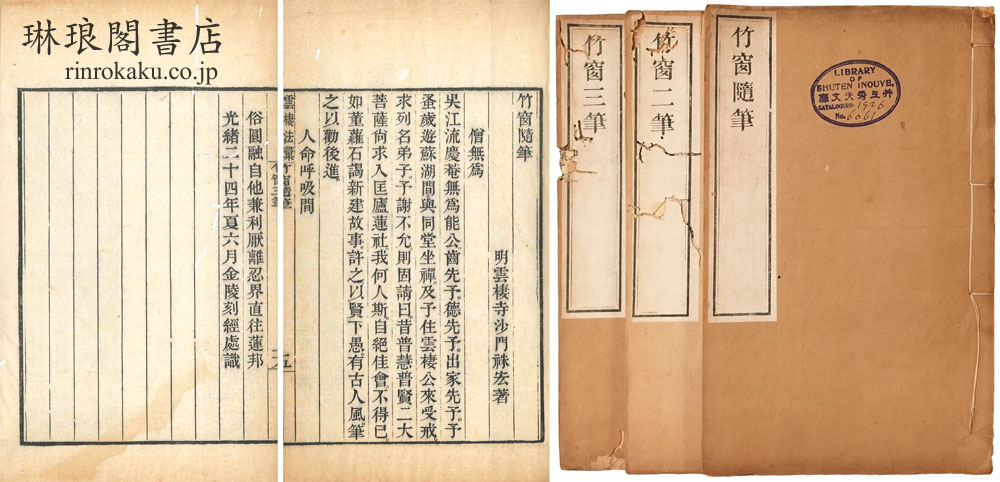 琳琅閣書店
rinrokaku.co.jp
竹窗隨筆
明雲棲寺沙門袾宏著
僧無爲
吳江流慶菴無爲能公齒先予。德先予。出家先予。予
蚤歲遊蘇湖間與同堂坐禪及予住雲棲公來受戒
求列名弟子。予謝不允則固請曰昔普慧普賢二大
菩薩尙求入匡廬蓮社我何人斯。自絕佳會不得已
如董蘿石謁新建故事。許之。以賢下愚有古人風。筆
之以勸後進。
人命呼吸間
俗圓融自他兼利厭離忍界直往蓮邦
光緒二十四年夏六月金陵刻經處識
竹窗隨筆
竹窗二筆
竹窗三筆
LIBRARY
OF
SHUTEN INOUYE,
CATALOGUED. 1926
No. 6061